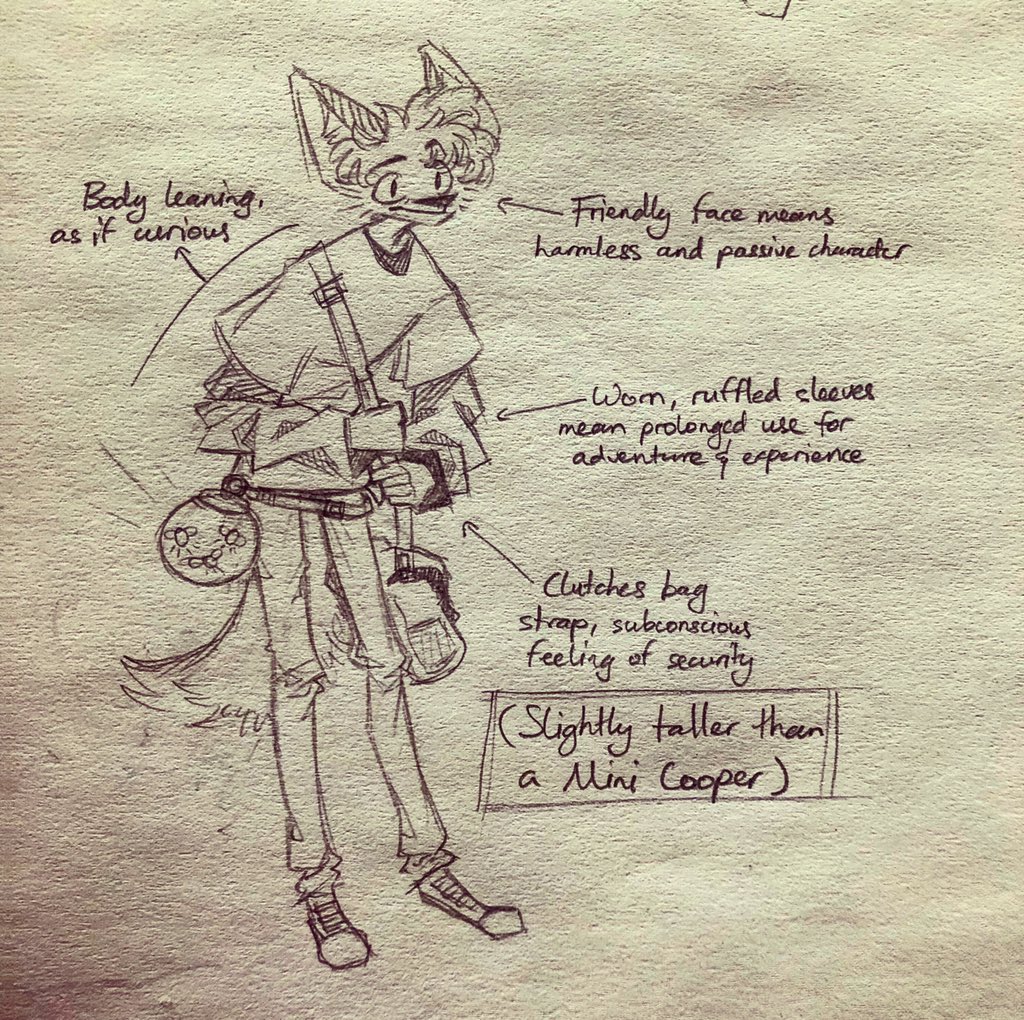 Body leaning,
as if curious
Friendly face means
harmless and passive character
Worn, ruffled sleeves
mean prolonged use for
adventure & experience
Clutches bag
strap, subconscious
feeling of security
(Slightly taller than
a Mini Cooper)